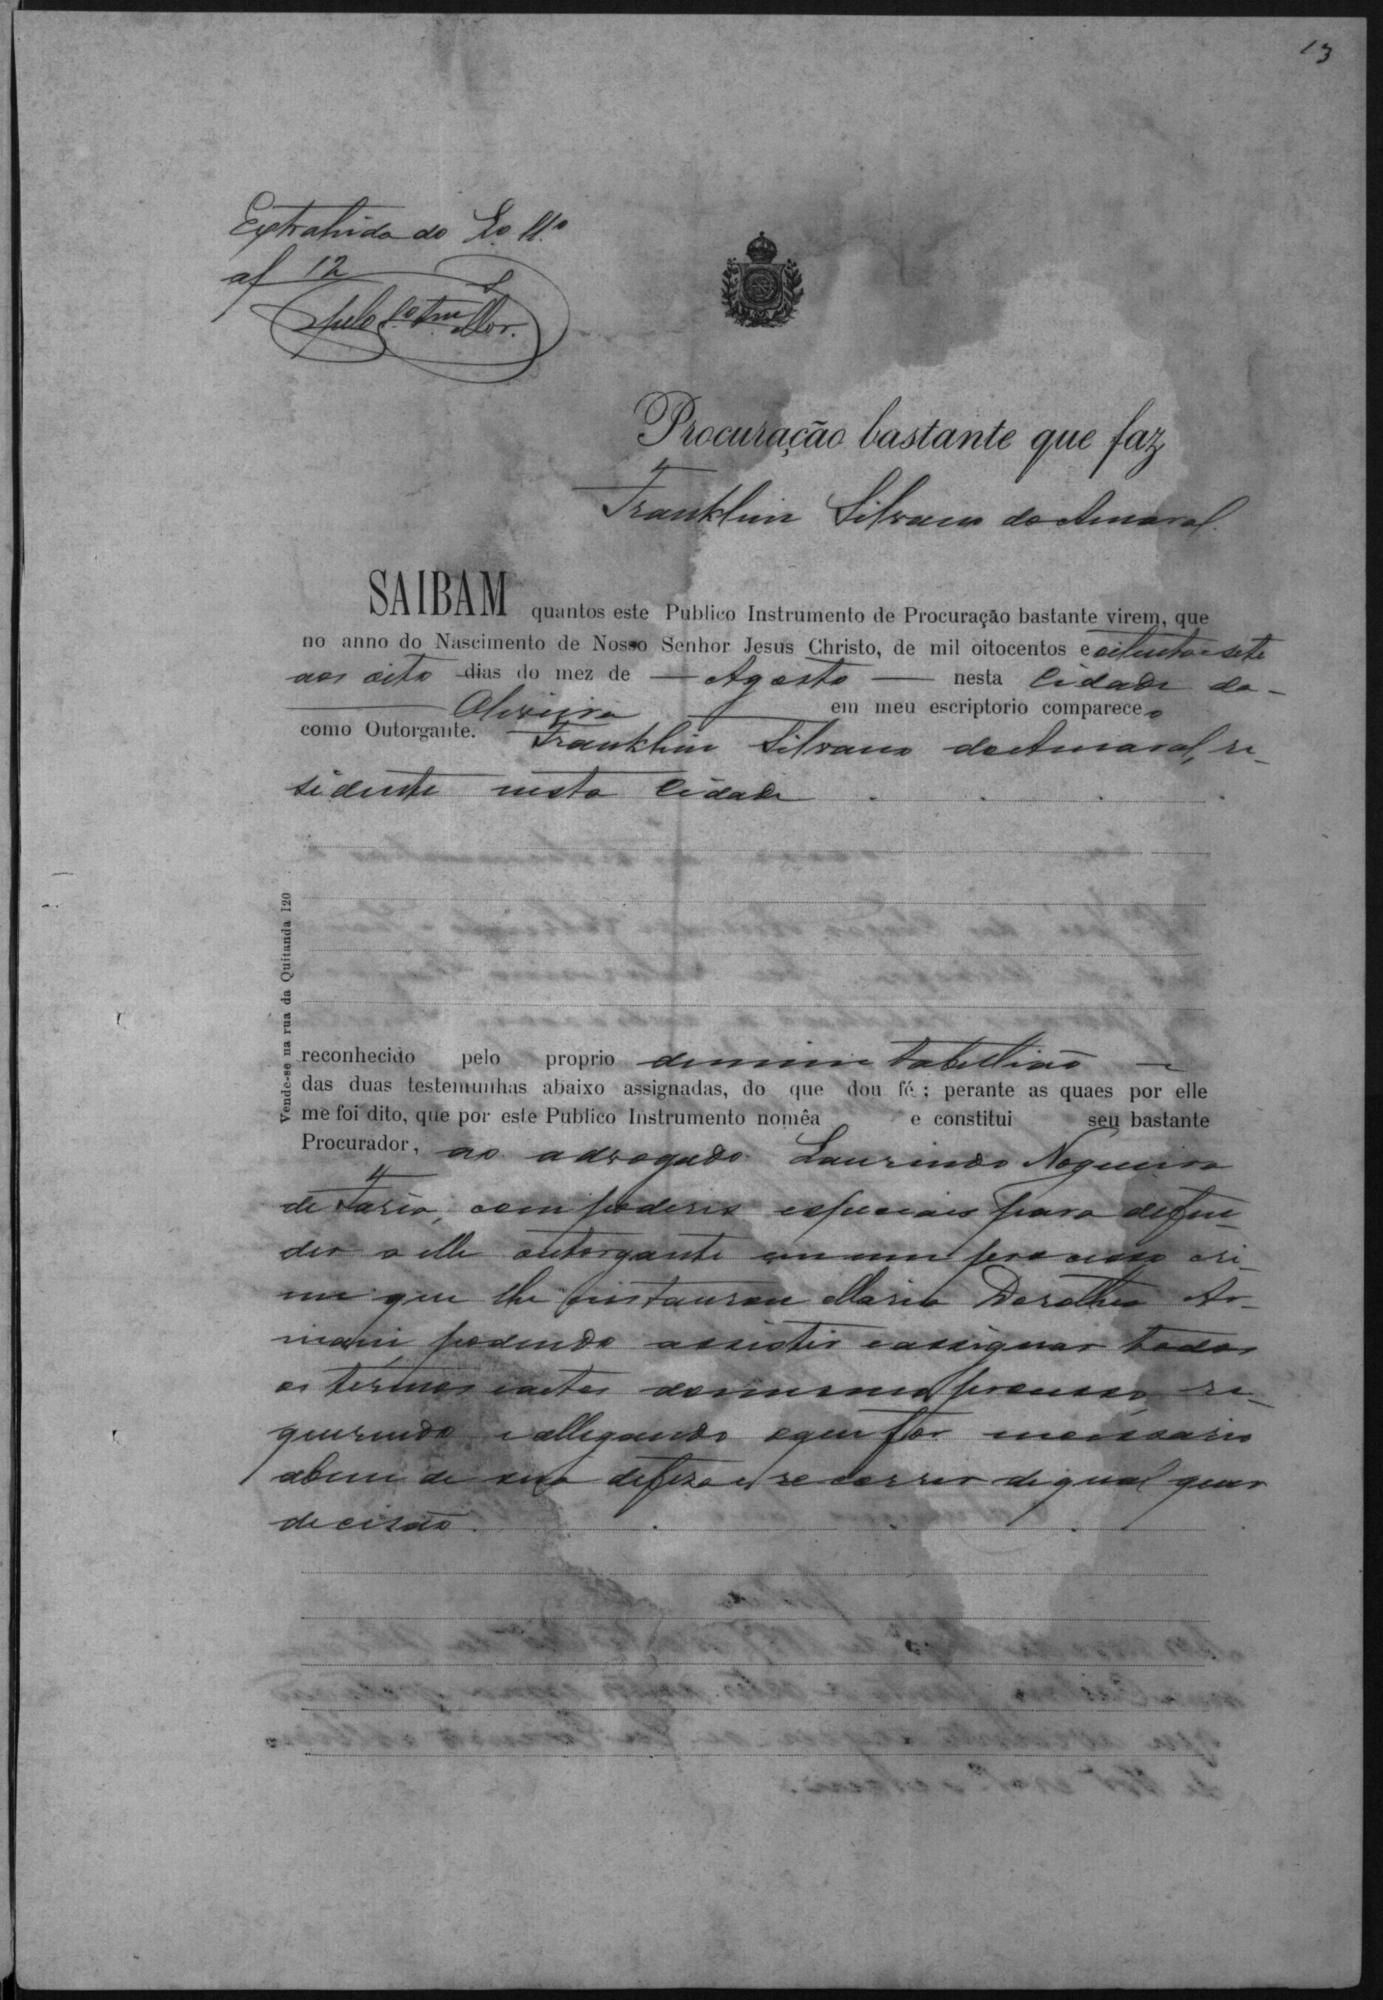 13
Extrahida do
af 12
pelo
Procuração bastante que faz
Franklin Silvano do Amaral.
SAIBAM quantos este Publico Instrumento de Procuração bastante virem, que
no anno do Nascimento de Nosso Senhor Jesus Christo, de mil oitocentos e oitenta e sete
aos oito dias do mez de — Agosto — nesta Cidade da
Oliveira em meu escriptorio comparece o
como Outorgante. Franklin Silvano do Amaral, re-
sidente nesta Cidade
reconhecido pelo proprio de mim Tabellião e
das duas testemunhas abaixo assignadas, do que dou fé; perante as quaes por elle
me foi dito, que por este Publico Instrumento nomêa e constitui seu bastante
Procurador, ao advogado Laurindo Nogueira
de Faria, com poderes especiaes para defen-
der a elle outorgante em um processo cri-
me que lhe instaurou Maria Dorothea
podendo assistir e assignar todos
os termos e actos do mesmo processo, re-
querendo e allegando o que for necessario
a bem de sua defeza e recorrer de qual quer
decisão.
Vende-se na rua da Quitanda 120